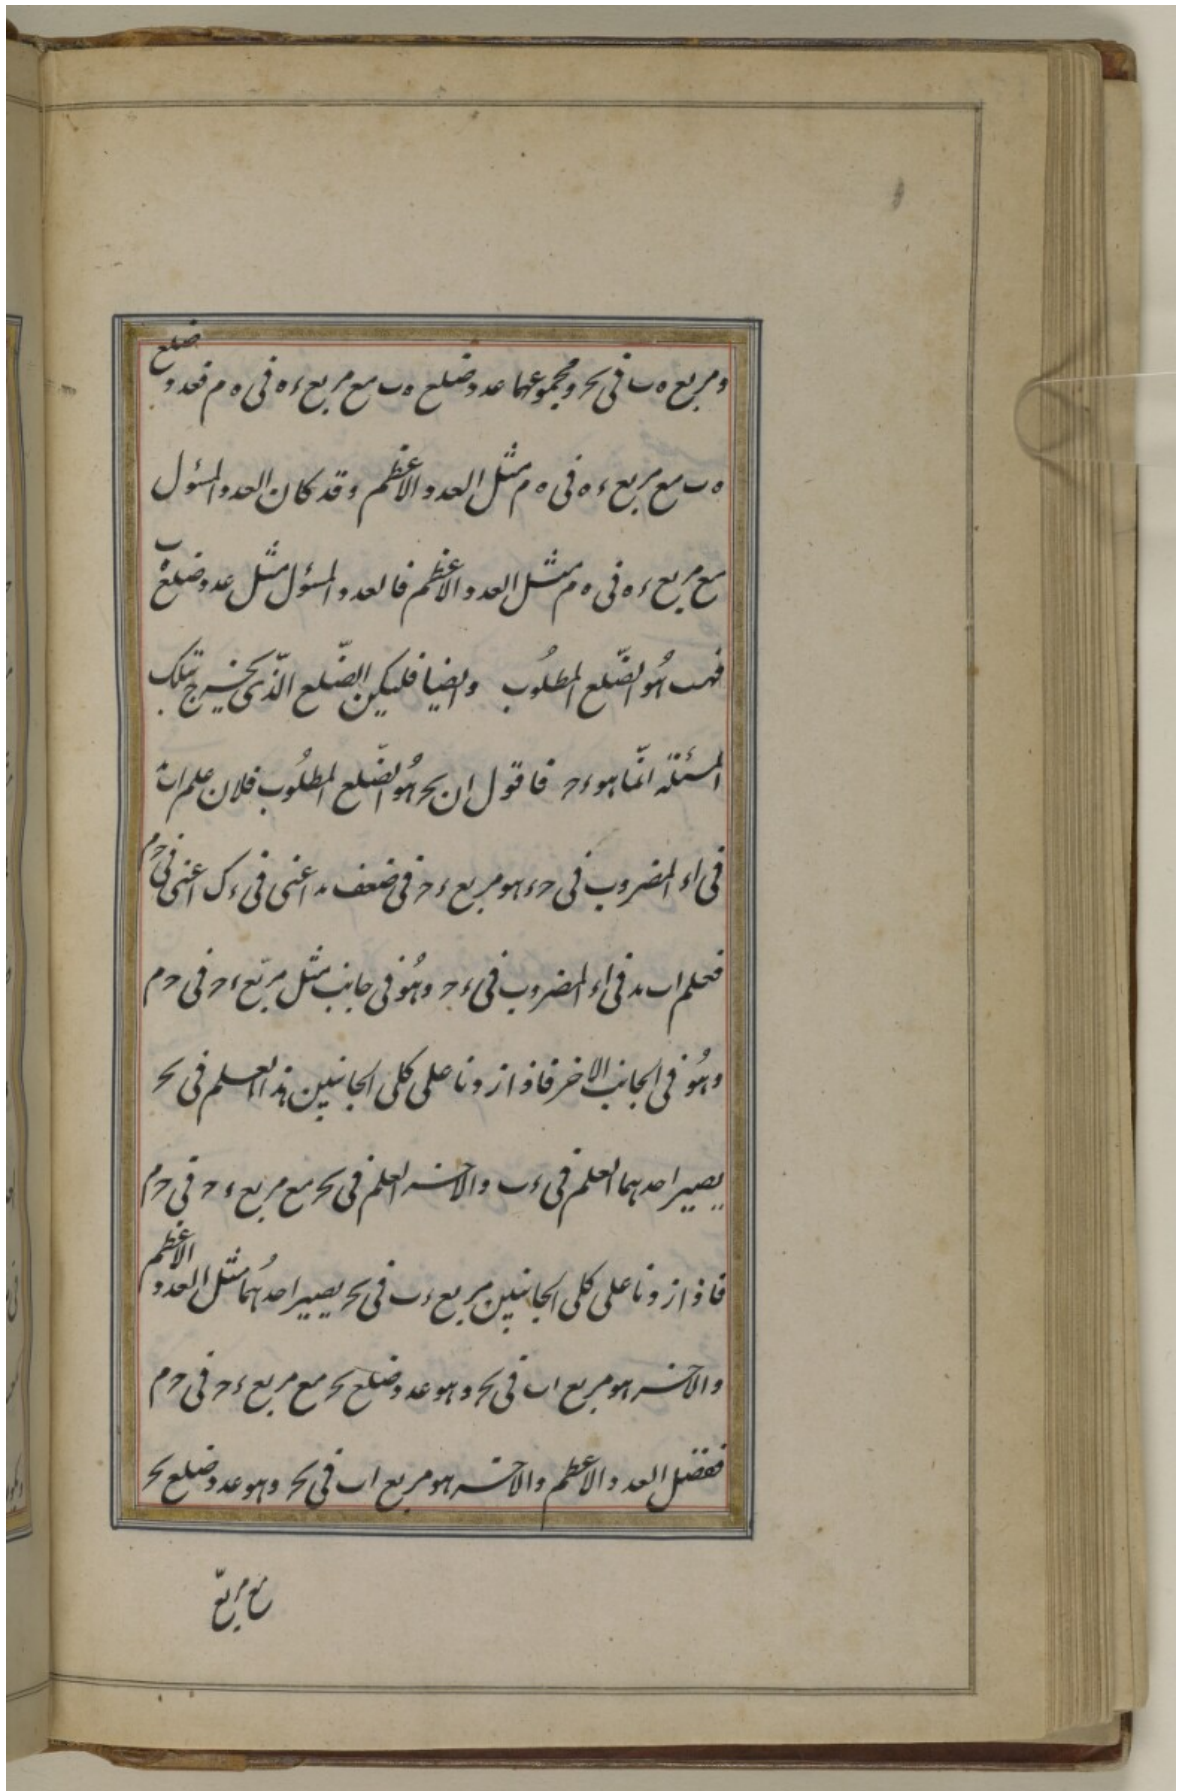 ومربع ه‍ ب فى ٮحـ ومجموعهما عدد ضلع ه‍ ب مع مربع ء ه‍ فى ه‍ م فعدد ضلع
ه‍ ب مع مربع ء ه‍ فى ه‍ م مثل العدد الاعظم وقد كان العدد المسؤل
مع مربع ء ه‍ فى ه‍ م مثل العدد الاعظم فالعدد المسؤل مثل عدد ضلع ه‍ ب
فهب هُو الضّلع المطلُوب وايضا فليكن الضّلع الّذى يخرج بتلك
المسئلة انّما هو ء حـ فاقول ان بحـ هُو الضّلع المطلُوب فلان علم اب
فى اء المضروب فى حـ ء هو مربع ء حـ فى ضعف اعنى فى ء ك اعنى فى حـ م
فعلم اب فى اء المضروب فى ء حـ وهُو فى جانب مثل مربّع ء حـ فى حـ م
وهُو فى الجانب الاخر فاذا زدنا على كلى الجانبين هذا العلم فى بحـ
يصير احدهما العلم فى ء ب والاخر العلم فى بحـ مع مربع ء حـ فى حـ م
فاذا زدنا على كلى الجانبين مربع ء ب فى بحـ يصير احدهُما مثل العدد الاعظم
والاخر هو مربع اب فى بحـ وهو عدد ضلع بحـ مع مربع ء حـ فى حـ م
ففضل العدد الاعظم والاخر هو مربع اب فى بحـ وهو عدد ضلع بحـ
مع مربّع